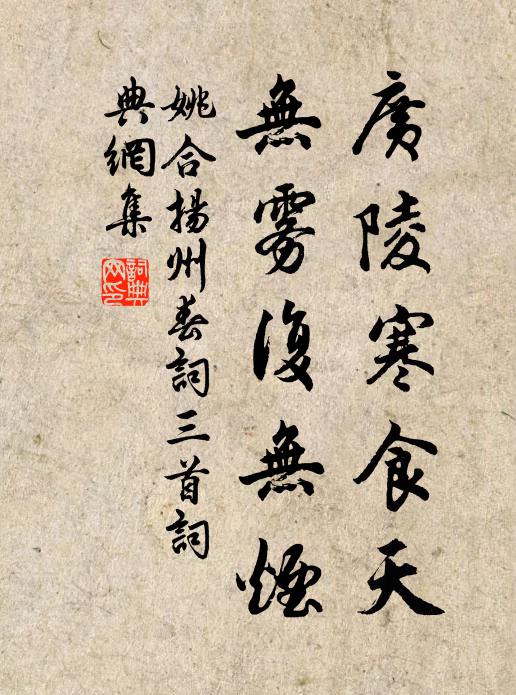 廣陵寒食天
無霧復無煙
姚合揚州春詞三首詞
典網集
詞典
网印